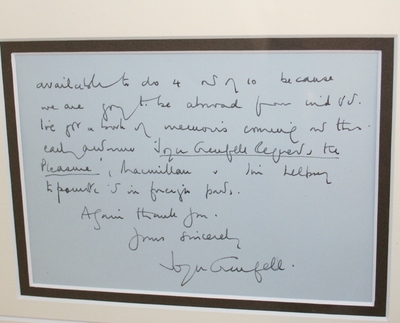 available to do 4 out of 10 because
we are going to be abroad from mid
I've got a book of memoirs coming out this
early autumn 'Joyce Grenfell Requests the
Pleasure', Macmillan & I'm helping
to promote it in foreign parts.
Again thank you.
Yours sincerely
Joyce Grenfell.